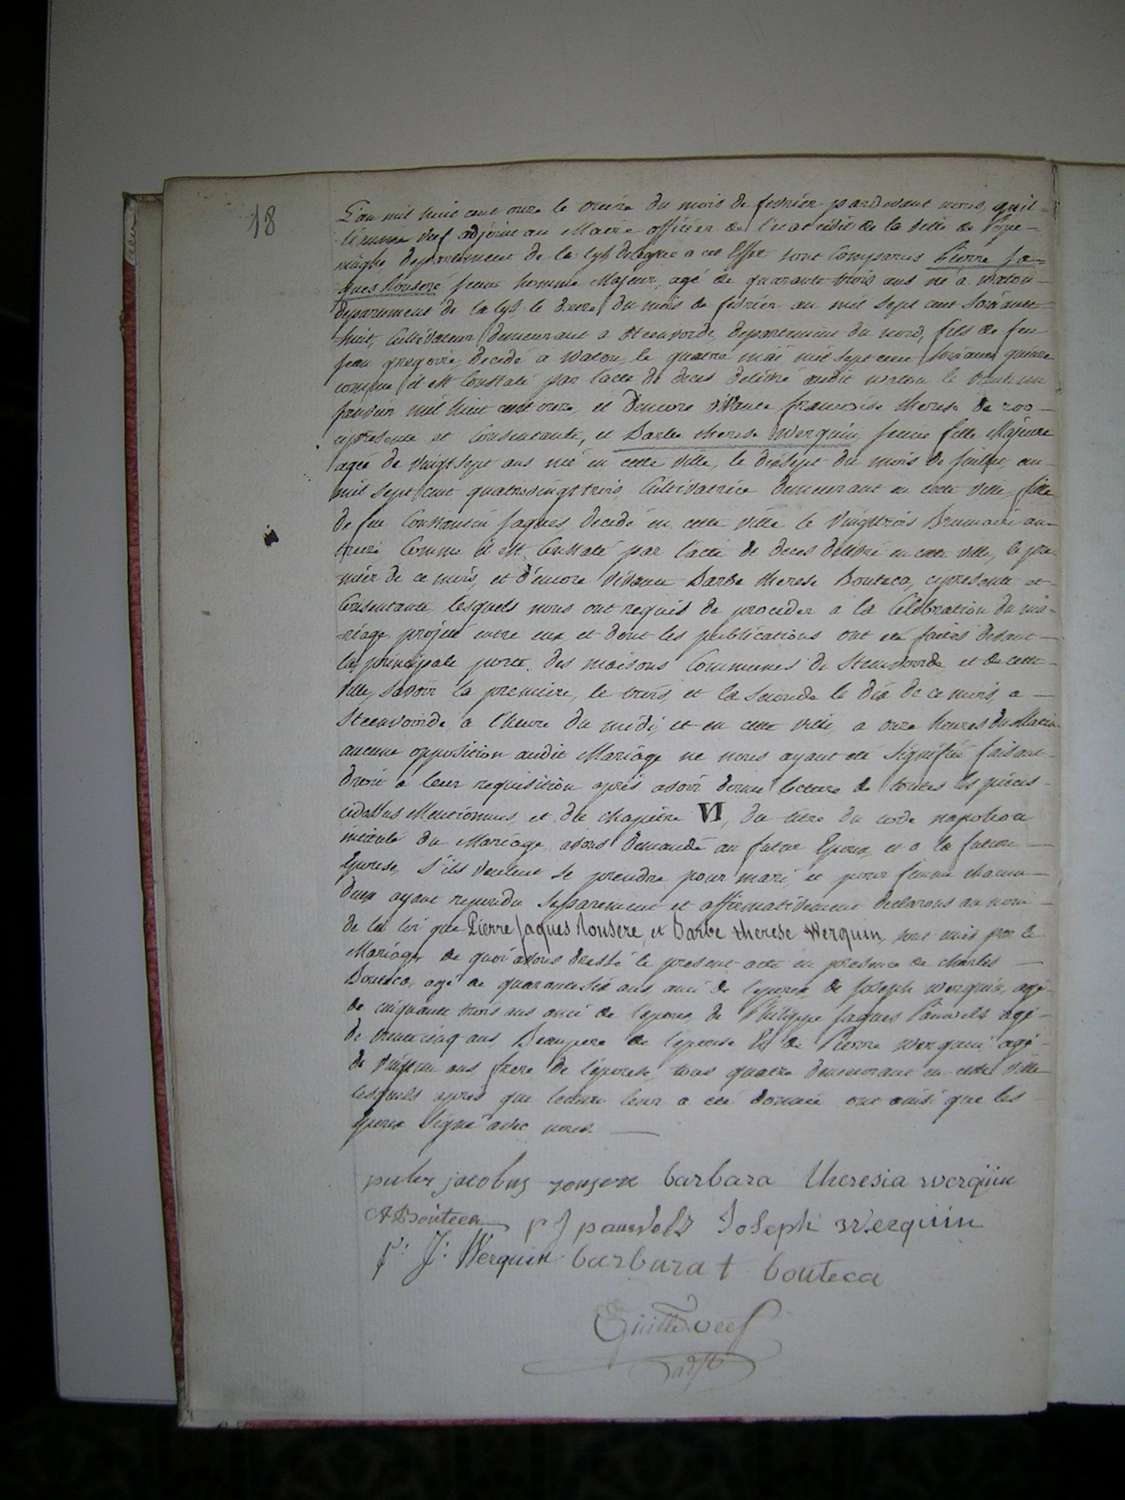 18
L'an mil huit cent onze le onzieme du mois de fevrier pardevant nous, guil-
laume Veef adjoint au Maire officier de l'etat civil de la ville de Pope-
ringhe departement de la lys delegué a cet Effet sont Comparus Pierre Ja-
ques Rousere jeune homme Majeur, agé de quarante trois ans né a Watou
departement de la lys le du mois de fevrier an mil sept cent soixante
huit, Cultivateur demeurant a Steenvorde, departement du nord, fils de feu
jean gregoire, decedé a Watou, le quatre mai mil sept cent soixante quinze
comme il est Constaté par l'acte de deces delivré audit watou le trente un
janvier mil huit cent onze, et d'encore vivante francoise therese de roo
cipresente et Consentante, et Barbe therese Werquin, jeune fille Majeure
agée de vingt sept ans née en cette ville, le dixsept du mois de juillet an
mil sept cent quatrevingt trois, Cultivatrice demeurant en cette ville, fille
de feu Constantin Jaques, decedé en cette ville le vingttrois Brumaire an
treize Comme il est Constaté par l'acte de deces delivré en cette ville, le pre-
mier de ce mois, et d'encore vivante Barbe therese Bouteca, cipresente et
Consentante, lesquels nous ont requis de proceder a la Célébration du ma-
riage projetté entre eux et dont les publications ont été faites devant
la principale porte des maisons Communes de Steenvoorde et de cette
ville, savoir la premiere, le trois et la seconde le dix de ce mois, a
Steenvoorde a l'heure du midi, et en cette ville, a onze heures du Matin
aucune opposition audit Mariage ne nous ayant été signifiée faisant
droit a leur requisition après avoir donné lecture de toutes les pièces
cidessus Mentionnées et du chapitre VI, du titre du code napoleon
intitulé du Mariage avons demandé au futur Epoux et a la future
Epouse, s'ils veulent se prendre pour mari et pour femme chacun
deux ayant repondu separement et affirmativement declarons au nom
de la loi que Pierre Jaques Rousere, et Barbe therese Werquin sont unis par le
Mariage de quoi avons dressé le present acte en presence de charles
Bouteca, agé de ans ami de l'epouse, de Joseph werquin, agé
de cinquante trois ans ami de l'epoux de Philippe Jaques Pauwels agé
de trente cinq ans Beaupere de l'epouse Et de Pierre werquin agé
de vingt un ans frere de l'epouse, tous quatre demeurant en cette ville
lesquels apres que lecture leur a été donnée ont ainsi que les
Epoux Signé avec nous.
petrus jacobus rousere barbara theresia werquin
Bouteca p J pauwels Joseph Werquin
P: J: Werquin barbara t bouteca
Guill Veef
adjt